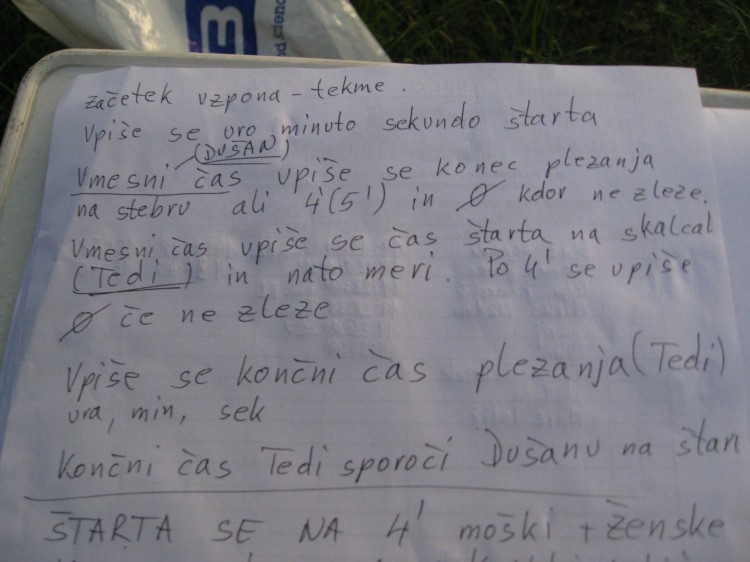 začetek vzpona - tekme.
Vpiše se uro minuto sekundo štarta
(DUŠAN)
Vmesni čas vpiše se konec plezanja
na stebru ali 4'(5') in Ø kdor ne zleze.
Vmesni čas vpiše se čas štarta na skalcal
(Tedi) in nato meri. Po 4' se vpiše
Ø če ne zleze
Vpiše se končni čas plezanja (Tedi)
ura, min, sek
Končni čas Tedi sporoči Dušanu na štan
ŠTARTA SE NA 4' moški + ženske